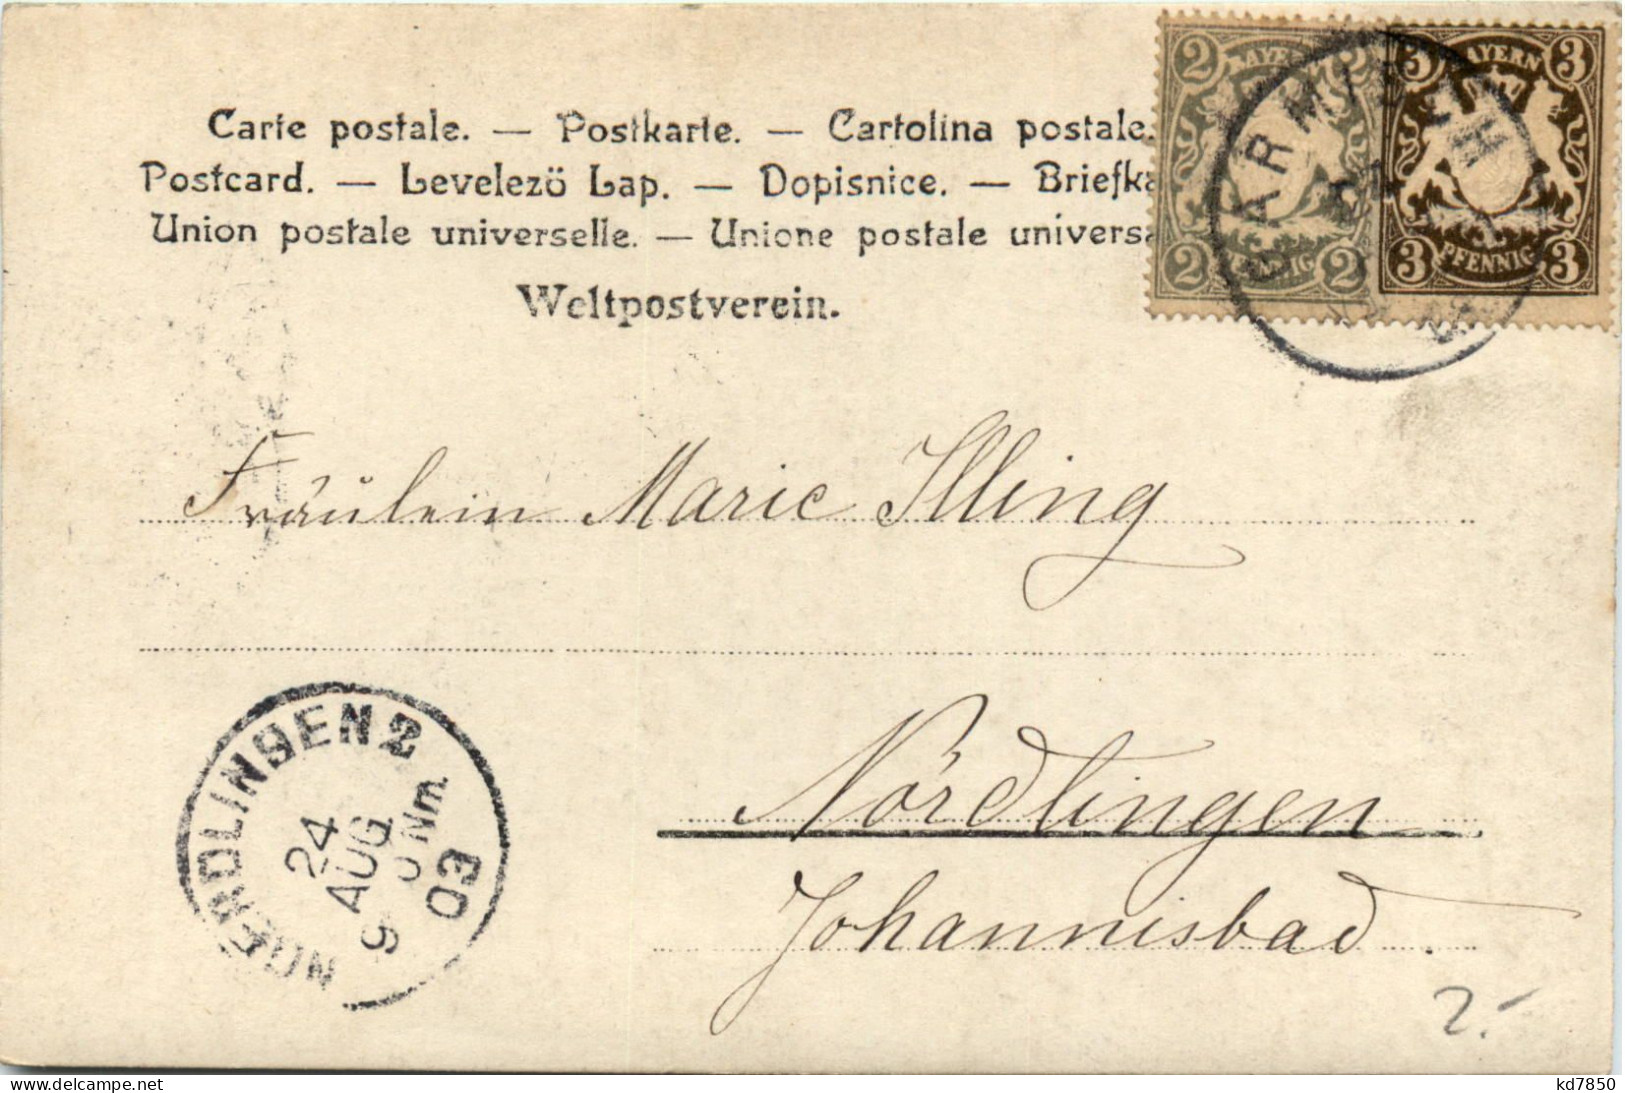 Carte postale. — Postkarte. — Cartolina postale.
Postcard. — Levelező Lap. — Dopisnice. —
Union postale universelle. — Unione postale
Weltpostverein.
2 BAYERN 2
2 PFENNIG 2
3 BAYERN 3
3 PFENNIG 3
GARMISCH
Fräulein Marie Illing
Nördlingen
Johannisbad.
NOERDLINGEN 2
24
AUG
9 Nm.
03
2.-
www.delcampe.net
kd7850